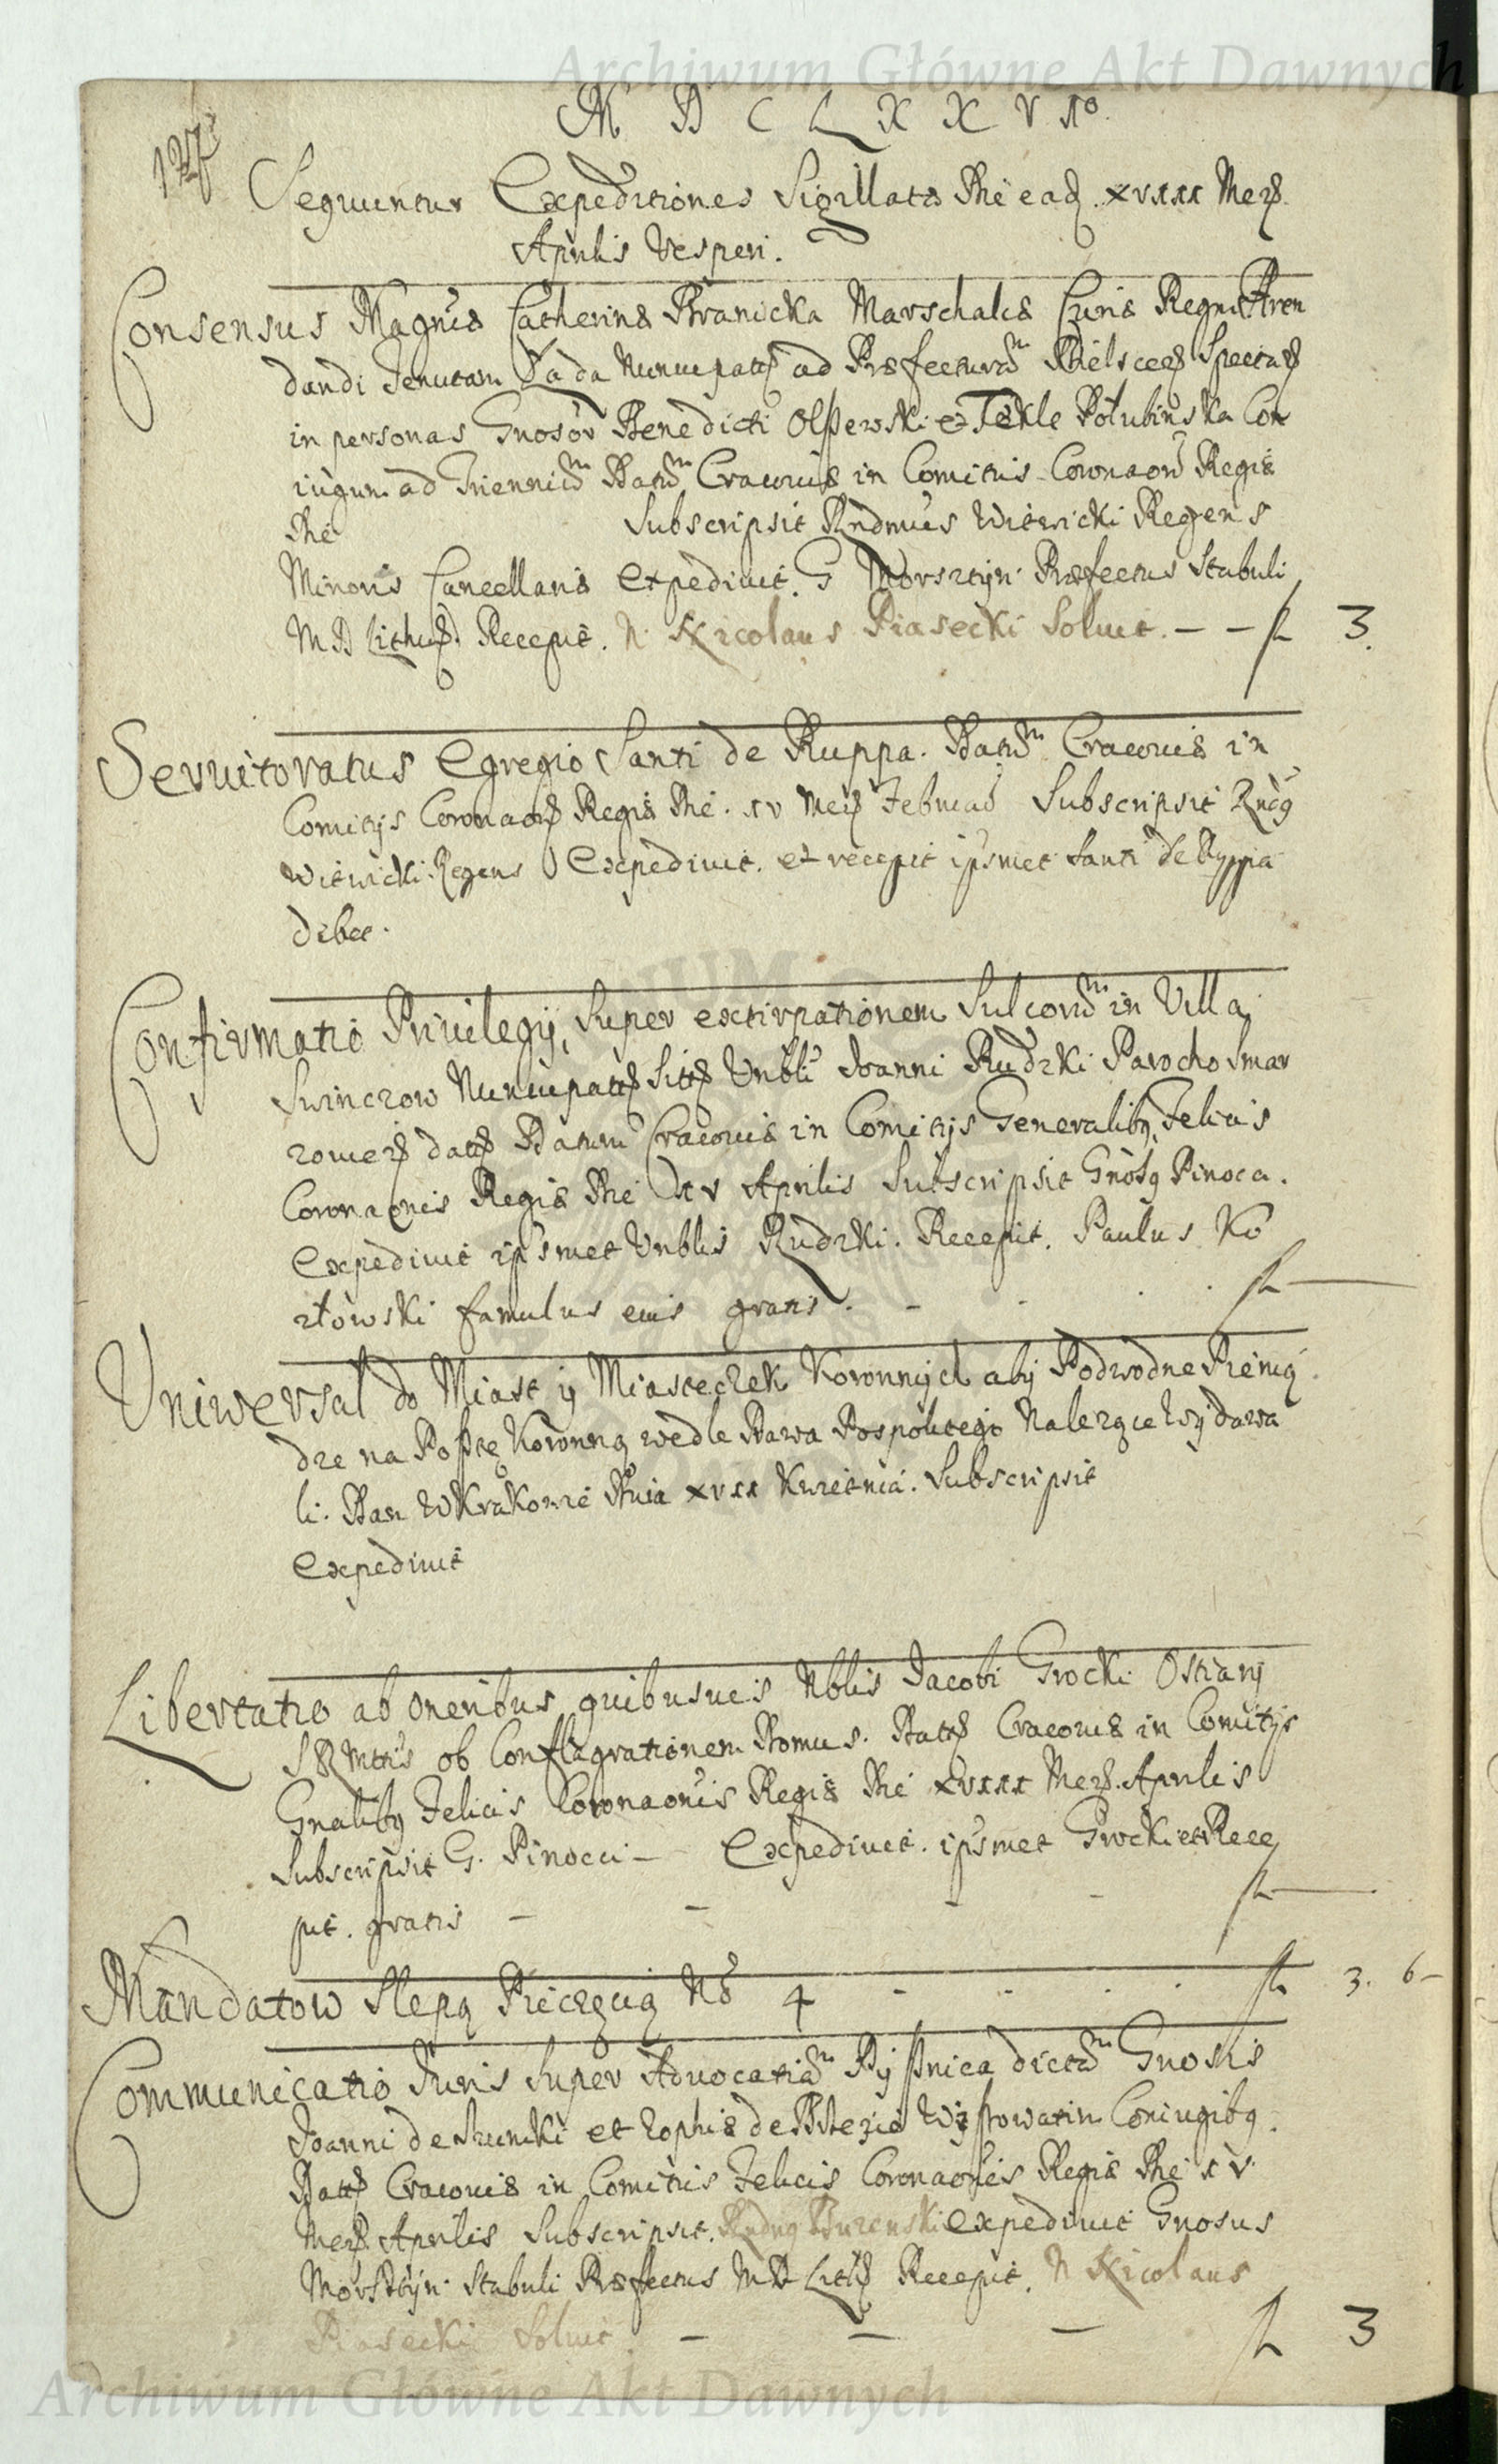 Archiwum Główne Akt Dawnych
M D C L X X V I°
127
Sequuntur Expeditiones Sigillatæ Die ead. XVIII Mens.
Aprilis Vesperi.
Consensus Magncæ Catherinæ Branicka Marschalcæ Curiæ Regni Aren
dandi Tenutam Łada Nuncupatā ad Præfecturam Bielscen Spectan
in personas Gnosor Benedicti Olszewski et Tekle Połubinska Con
iugum ad Trienniu Datum Cracoviæ in Comitiis Coronaõr Regiæ
Die Subscripsit Rndmus Witwicki Regens
Minoris Cancellariæ Expedivit. G Morsztyn Præfectus Stabuli
M D Lithu. Recepit. N. Nicolaus Piasecki Soluit. — — fl 3.
Servitoratus Egregio Santi de Ruppa. Datum Cracoviæ in
Comitijs Coronaõn Regiæ Die. XV Mens Februar Subscripsit
Witwicki Regens Expedivit. et recepit ipsmet Santi de Ruppa
debet.
Confirmatio Privilegij, super extirpationem Sulcorum in Villa
Swinczow Nuncupata Sitt Vnbli Joanni Rudzki Parocho Smar
zowien datt Datum Cracoviæ in Comitijs Generalibq Felicis
Coronaonis Regiæ Die XV Aprilis Subscripsit Gnosq Pinocci.
Expedivit ipsmet Vnblis Rudzki. Recepit. Paulus Ko
złowski famulus eius gratis. - . . . fl —
Uniwersał do Miast y Miasteczek Koronnych aby Podwodne Pienią
dze na Posztę Koronną wedle Prawa Pospolitego Nalezące wydawa
li. Dan w Krakowie Dnia XVII Kwietnia. Subscripsit
Expedivit
Libertatio ab oneribus quibusvis Nblis Jacobi Grocki Ostiarij
S R Mttis ob Conflagrationem Domus. Datt Cracoviæ in Comitijs
Gnalibq Felicis Coronaonis Regiæ Die XVIII Mens. Aprilis
Subscripsit G. Pinocci — Expedivit. ipsmet Grocki et Rece
pit. gratis — — — - fl —
Mandatow Slepą Pieczęcią No 4 - . . . fl 3. 6 —
Communicatio Juris Super Advocatiam dictam Gnosis
Joanni de et Zophiæ de Coniugibq.
Datt Cracoviæ in Comitiis Felicis Coronaonis Regiæ Die XV
Mens Aprilis Subscripsit. Expedivit Gnosus
Morsztyn Stabuli Præfectus M D Litt Recepit. N Nicolaus
Piasecki Soluit. — — — fl 3
Archiwum Główne Akt Dawnych